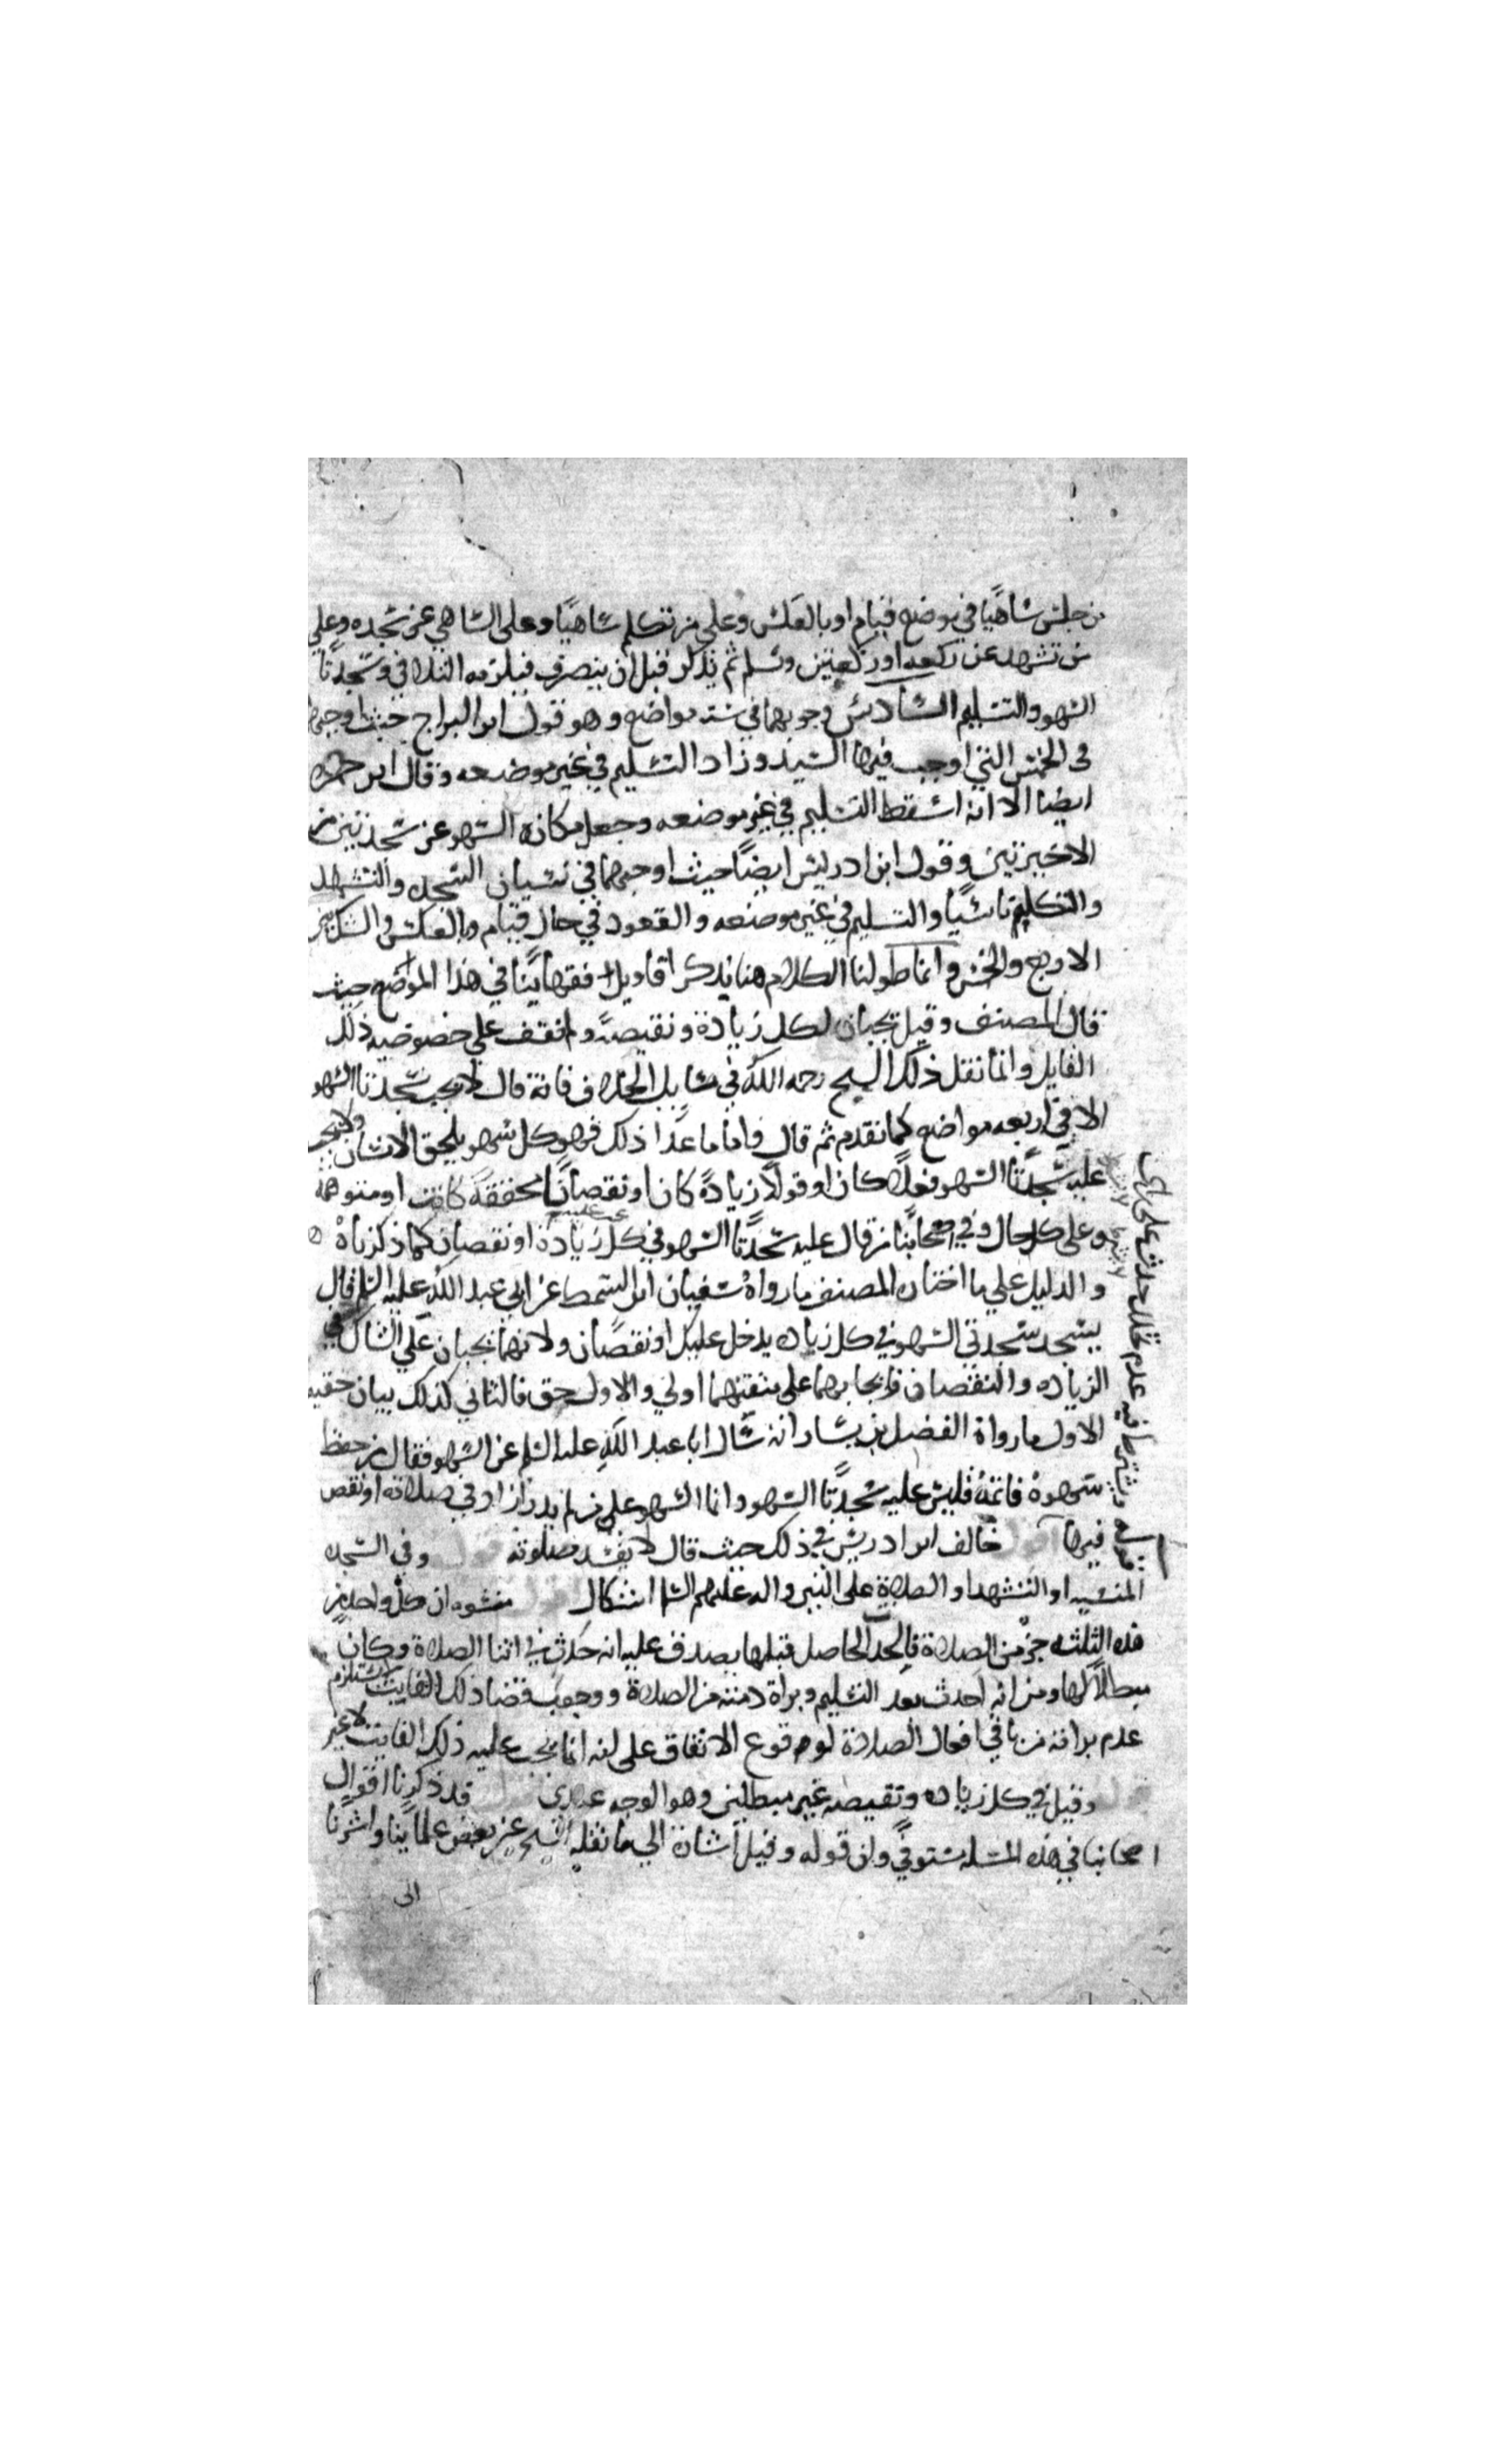 من جلس ساهيًا في موضع قيام او بالعكس وعلى من تكلم ساهيًا وعلى الساهي عن سجده وعلى
من تشهد عن ركعه او ركعتين وسلم ثم تذكر قبل ان ينصرف فيلزمه التلافي وسجدتا
السهو والتسليم السادس وجوبهما في سته مواضع وهو قول ابن البراج حيث اوجبهما
في الخمس التي اوجب فيها السيد وزاد التسليم في غير موضعه وقال ابن حمزه
ايضا الا انه اسقط التسليم في غير موضعه وجعل مكانه السهو عن سجدتين من
الاخيرتين وقول ابن ادريس ايضًا حيث اوجبهما في نسيان السجده والتشهد
والتكلم ناسيًا والتسليم في غير موضعه والقعود في حال قيام وبالعكس والشك بين
الاربع والخمس وانما طولنا الكلام هنا بذكر اقاويل فقهائنا في هذا الموضع حيث
قال المصنف وقيل تجبان لكل زيادة ونقيصة ولم نقف على خصوصيه ذلك
القايل وانما نقل ذلك الشيخ رحمه الله في مسايل الخلاف فانه قال لا يجب سجدتا السهو
الا في اربعه مواضع كما تقدم ثم قال واما ما عدا ذلك فهو كل سهو يلحق الانسان ولا يجب
عليه سجدتا السهو فعلًا كان او قولًا زيادةً كان او نقصانًا محققة كانت او متوهمة
وعلى كل حال وفي اصحابنا من قال عليه سجدتا السهو في كل زيادة او نقصان كما ذكرناه
والدليل على ما اختاره المصنف ما رواه سفيان ابن السمط عن ابي عبد الله عليه السلم قال
يسجد سجدتي السهو في كل زياده يدخل عليك او نقصان ولانهما تجبان على الشاك في
الزياده والنقصان فايجابهما على متيقنهما اولى والاول حق فالثاني كذلك بيان حقيه
الاول ما رواه الفضيل بن يسار انه سال ابا عبد الله عليه السلم عن السهو فقال من حفظ
سهوه فاتمه فليس عليه سجدتا السهو وانما السهو على من لم يدر ازاد في صلاته او نقص
فيها اقول خالف ابن ادريس في ذلك حيث قال لا يفسد صلوته قوله وفي السجده
المنسيه او التشهد او الصلاة على النبي واله عليهم السلم اشكال اقول منشوه ان كل واحد من
هذه الثلثه جزء من الصلاة فالحدث الحاصل قبلها يصدق عليه انه حدث في اثنا الصلاة وكان
مبطلًا لها ومن انه احدث بعد التسليم وبراة ذمته من الصلاة ووجوب قضا ذلك الفايت لا يستلزم
عدم براته من باقي افعال الصلاة لوقوع الاتفاق على انه انما يجب عليه ذلك الفايت لا غير
قوله وقيل في كل زياده ونقيصه غير مبطلتين وهو الوجه عندي اقول قد ذكرنا اقوال
اصحابنا في هذه المسله مستوفي وان قوله وقيل اشارة الى ما نقله الشيخ عن بعض علمائنا واشرنا
الى